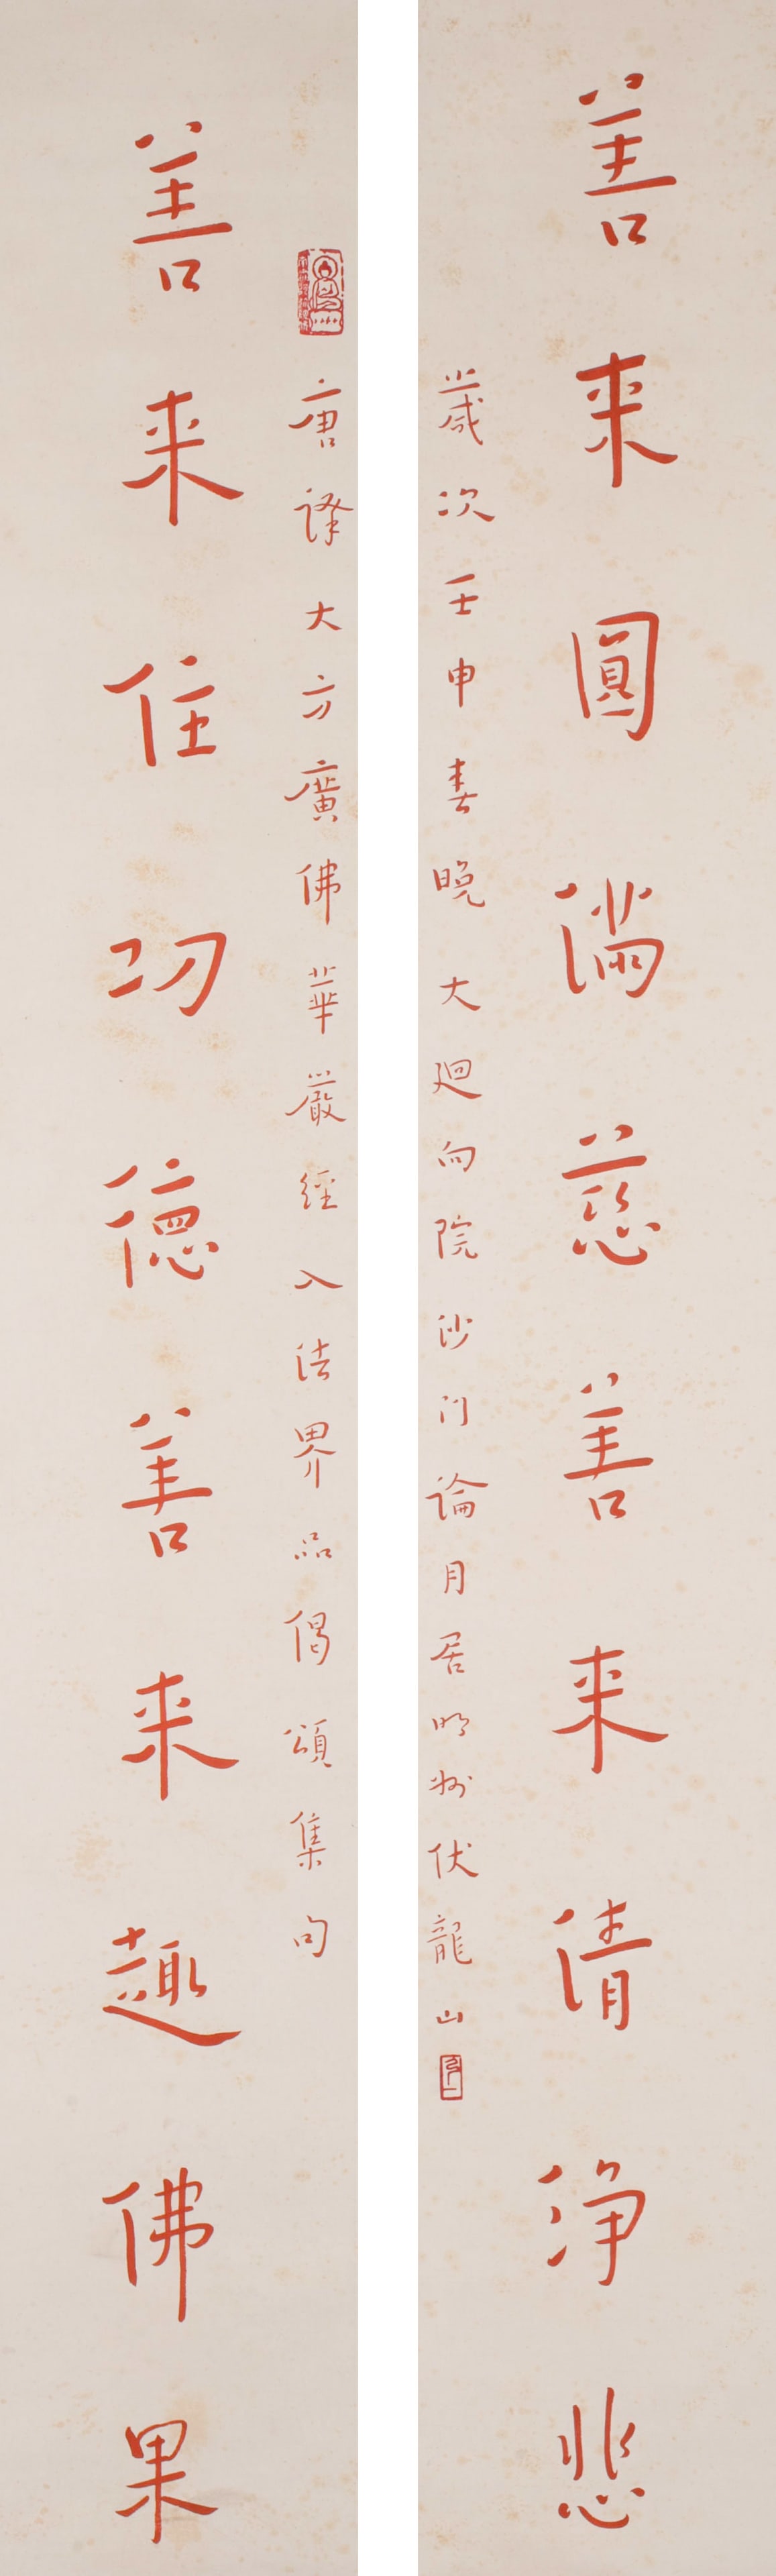 善来圓滿慈善来清淨悲
歲次壬申春晚大迴向院沙门論月居明州伏龍山
唐譯大方廣佛華嚴經入法界品偈頌集句
善来住功德善来趣佛果